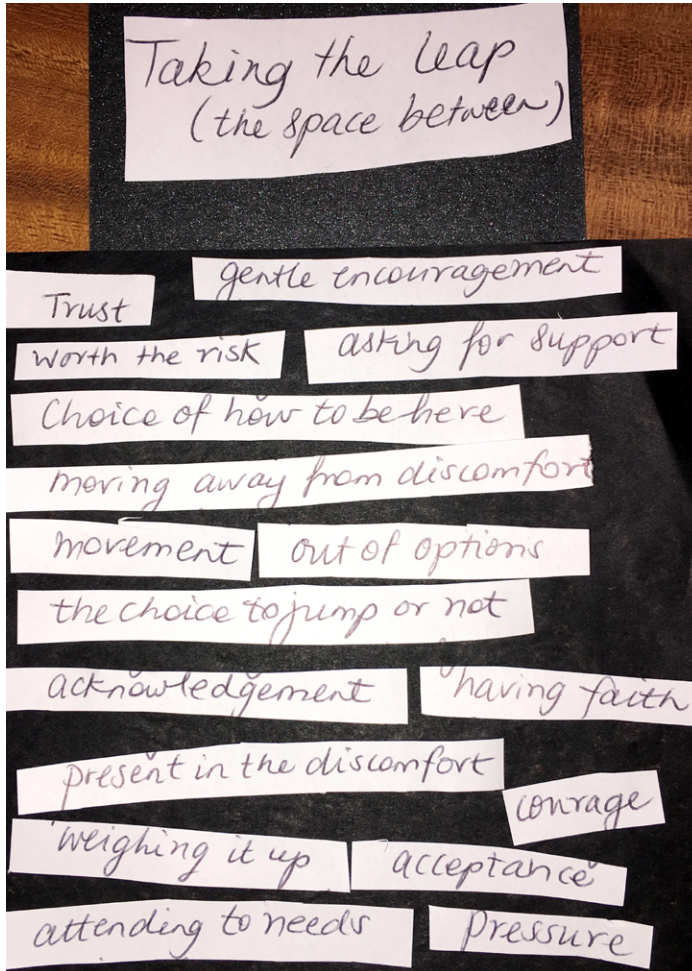 Taking the leap
(the space between)
gentle encouragement
Trust
worth the risk
asking for support
Choice of how to be here
moving away from discomfort
movement
out of options
the choice to jump or not
acknowledgement
having faith
present in the discomfort
courage
weighing it up
acceptance
attending to needs
Pressure